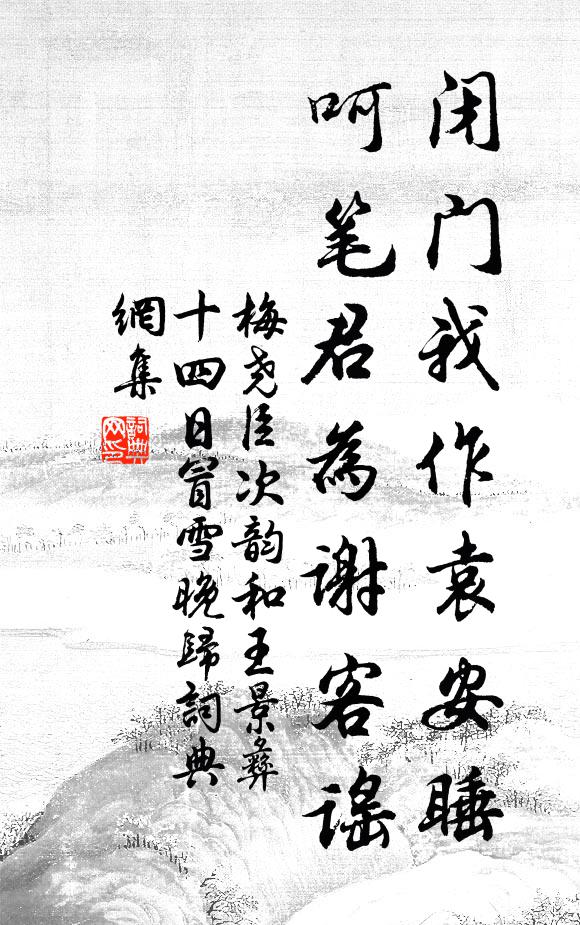 闭门我作袁安睡
呵笔君为谢客谣
梅尧臣次韵和王景彝
十四日冒雪晚歸詞典
網集
詞典
网印